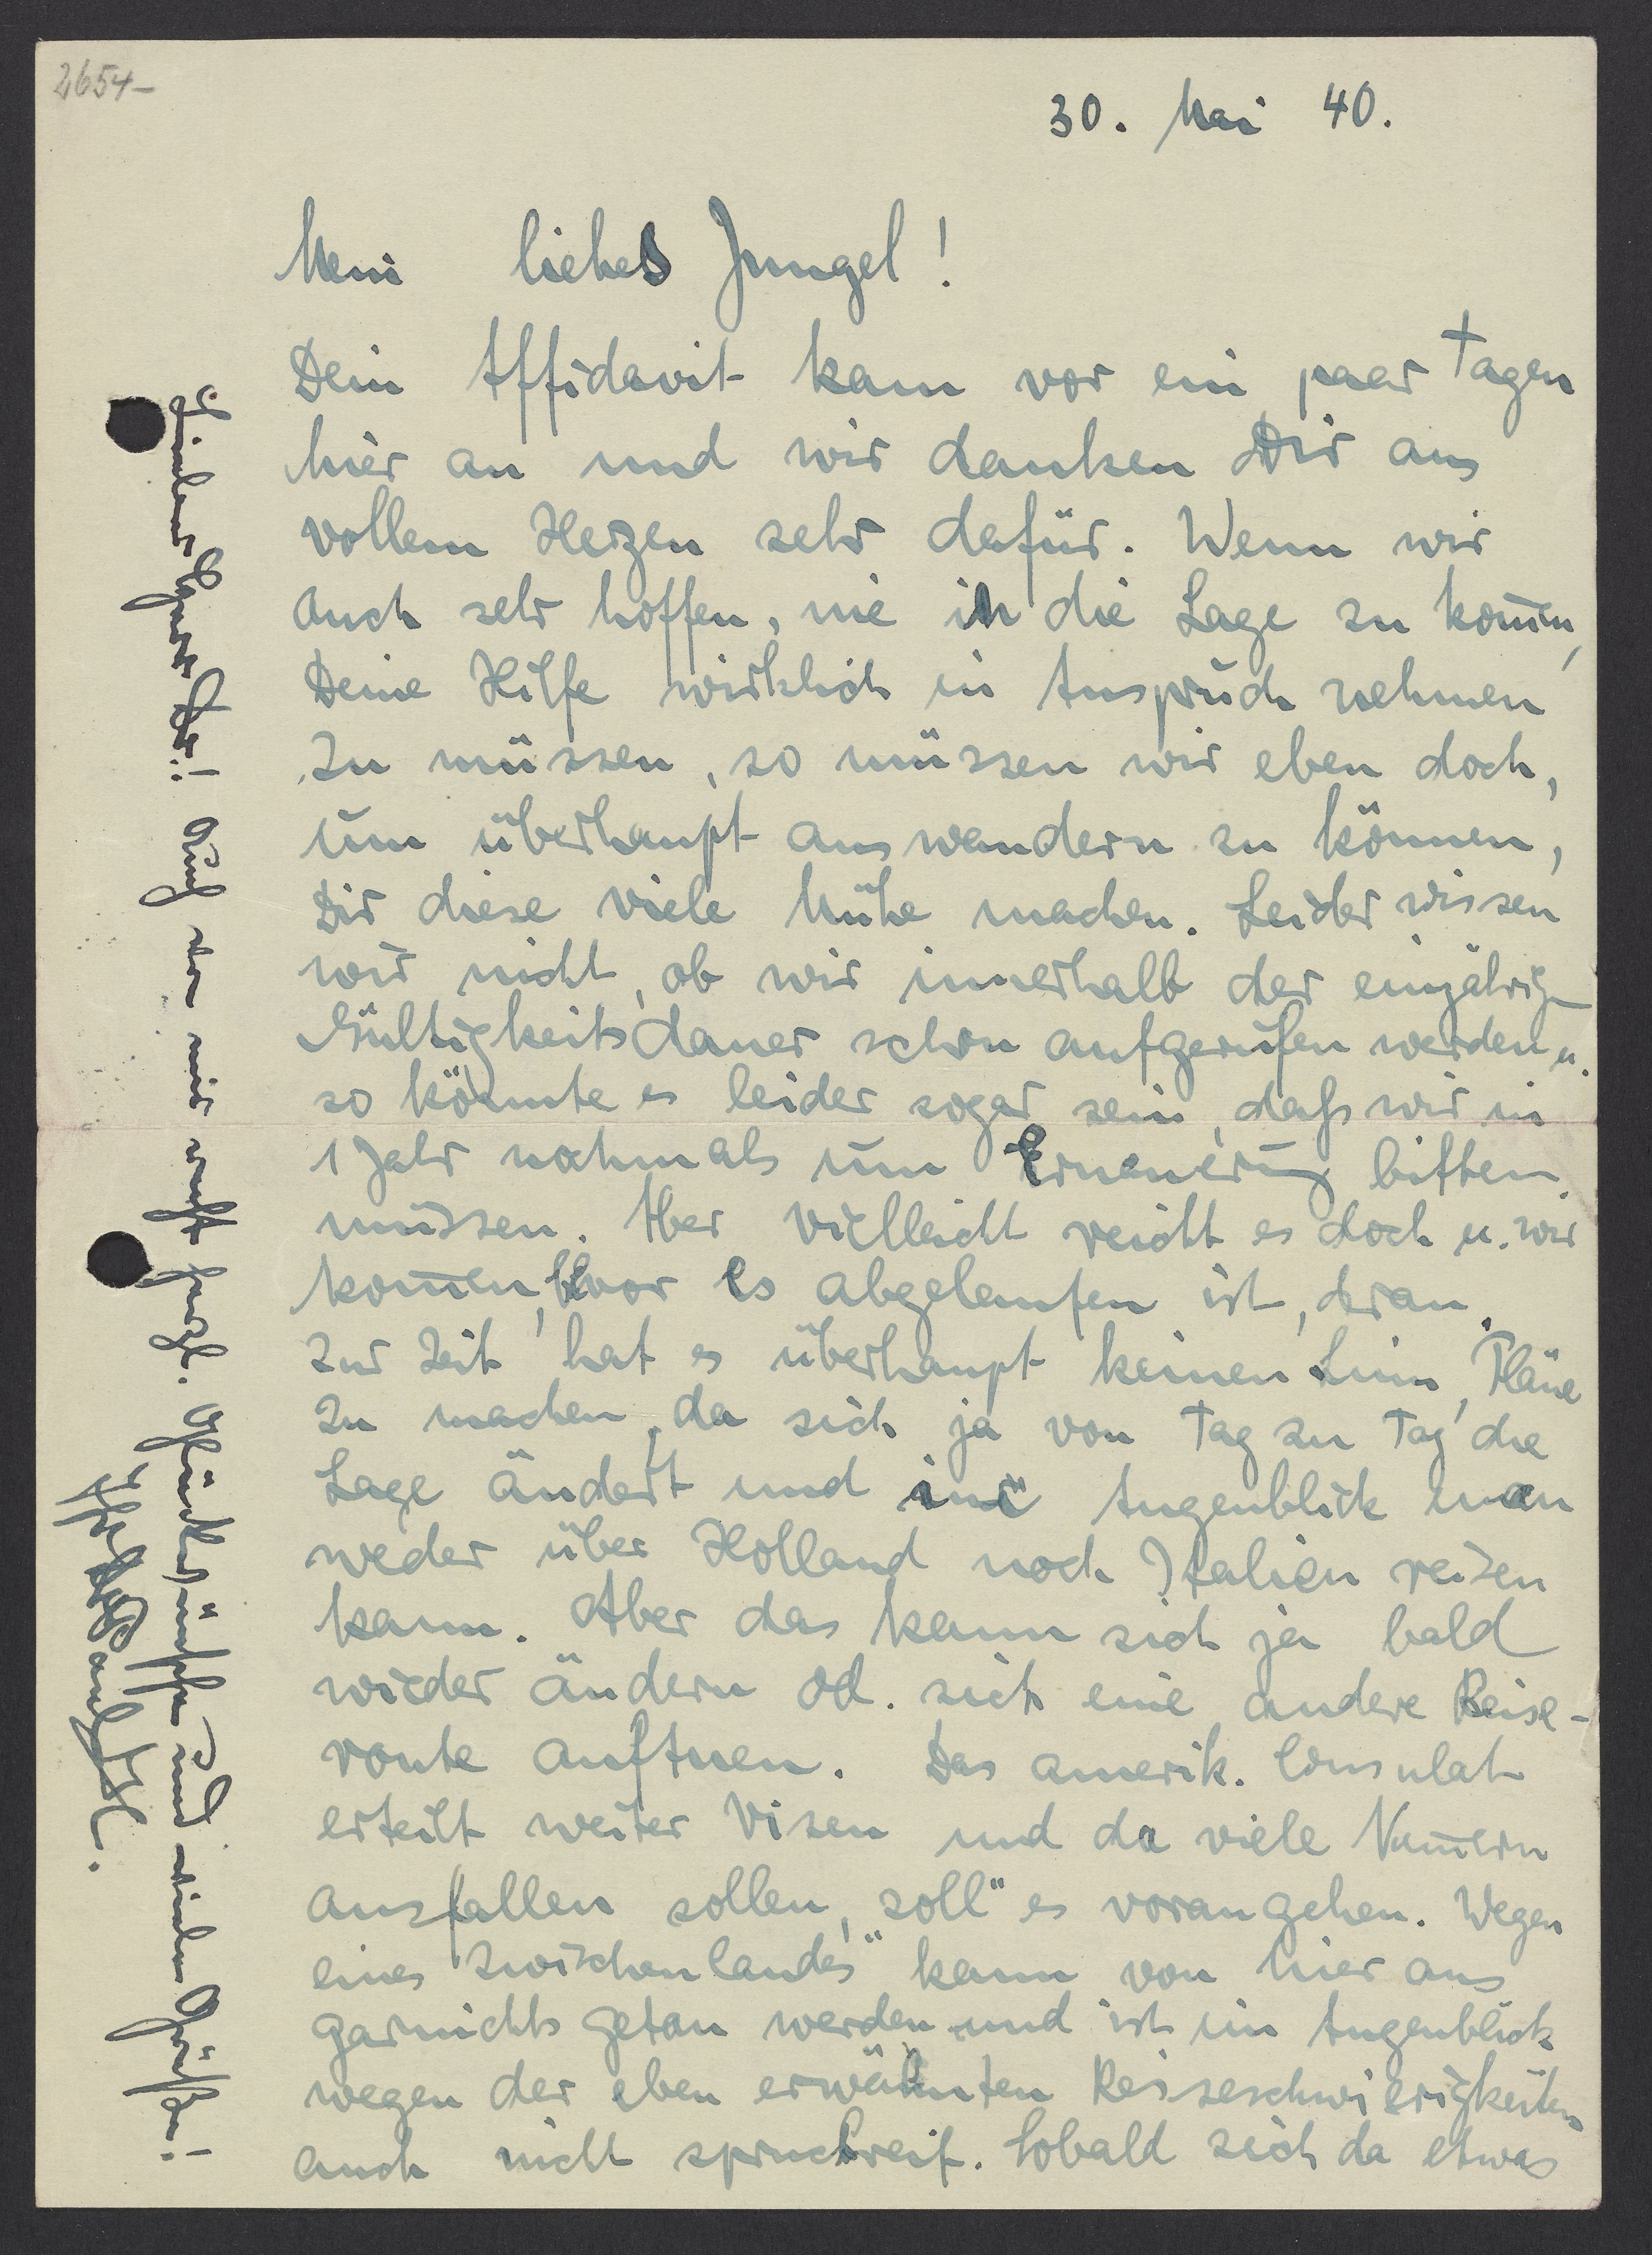 2654-
30. Mai 40.
Mein liebes Jungel!
Dein Affidavit kam vor ein paar Tagen
hier an und wir danken Dir aus
vollem Herzen sehr dafür. Wenn wir
auch sehr hoffen, nie in die Lage zu kom̄en,
Deine Hilfe wirklich in Anspruch nehmen
zu müssen, so müssen wir eben doch,
um überhaupt auswandern zu können,
Dir diese viele Mühe machen. Leider wissen
wir nicht, ob wir innerhalb der einjährigen
Gültigkeitsdauer schon aufgerufen werden u.
so könnte es leider sogar sein, daß wir in
1 Jahr nochmals um Erneuerung bitten
müssen. Aber vielleicht reicht es doch u. wir
kom̄en, bevor es abgelaufen ist, dran.
Zur Zeit hat es überhaupt keinen Sinn, Pläne
zu machen, da sich ja von Tag zu Tag die
Lage ändert und im Augenblick man
weder über Holland noch Italien reisen
kann. Aber das kann sich ja bald
wieder ändern od. sich eine andere Reise-
route auftuen. Das amerik. Consulat
erteilt weiter Visen und da viele Num̄ern
ausfallen sollen, "soll" es vorangehen. Wegen
eines "Zwischenlandes" kann von hier aus
garnichts getan werden und ist im Augenblick
wegen der eben erwähnten Reiseschwierigkeiten
auch nicht spruchreif. Sobald sich da etwas
Auch von mir recht herzl. Glückwünsche und viele Grüße!
Paul